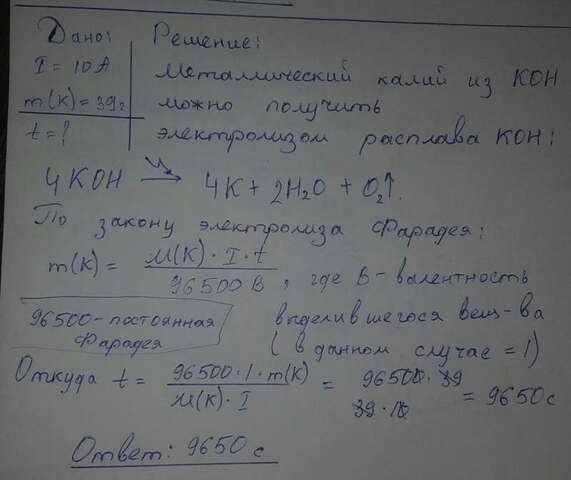 Дано:
I = 10 А
m(K) = 39 г
t = ?
Решение:
Металлический калий из KOH
можно получить
электролизом расплава KOH:
4KOH → 4K + 2H₂O + O₂↑.
По закону электролиза Фарадея:
m(K) = M(K) · I · t / 96500 B, где B - валентность
96500 - постоянная
Фарадея
выделившегося вещ-ва
(в данном случае = 1)
Откуда t = 96500 · 1 · m(K) / M(K) · I = 96500 · 39 / 39 · 10 = 9650 с
Ответ: 9650 с